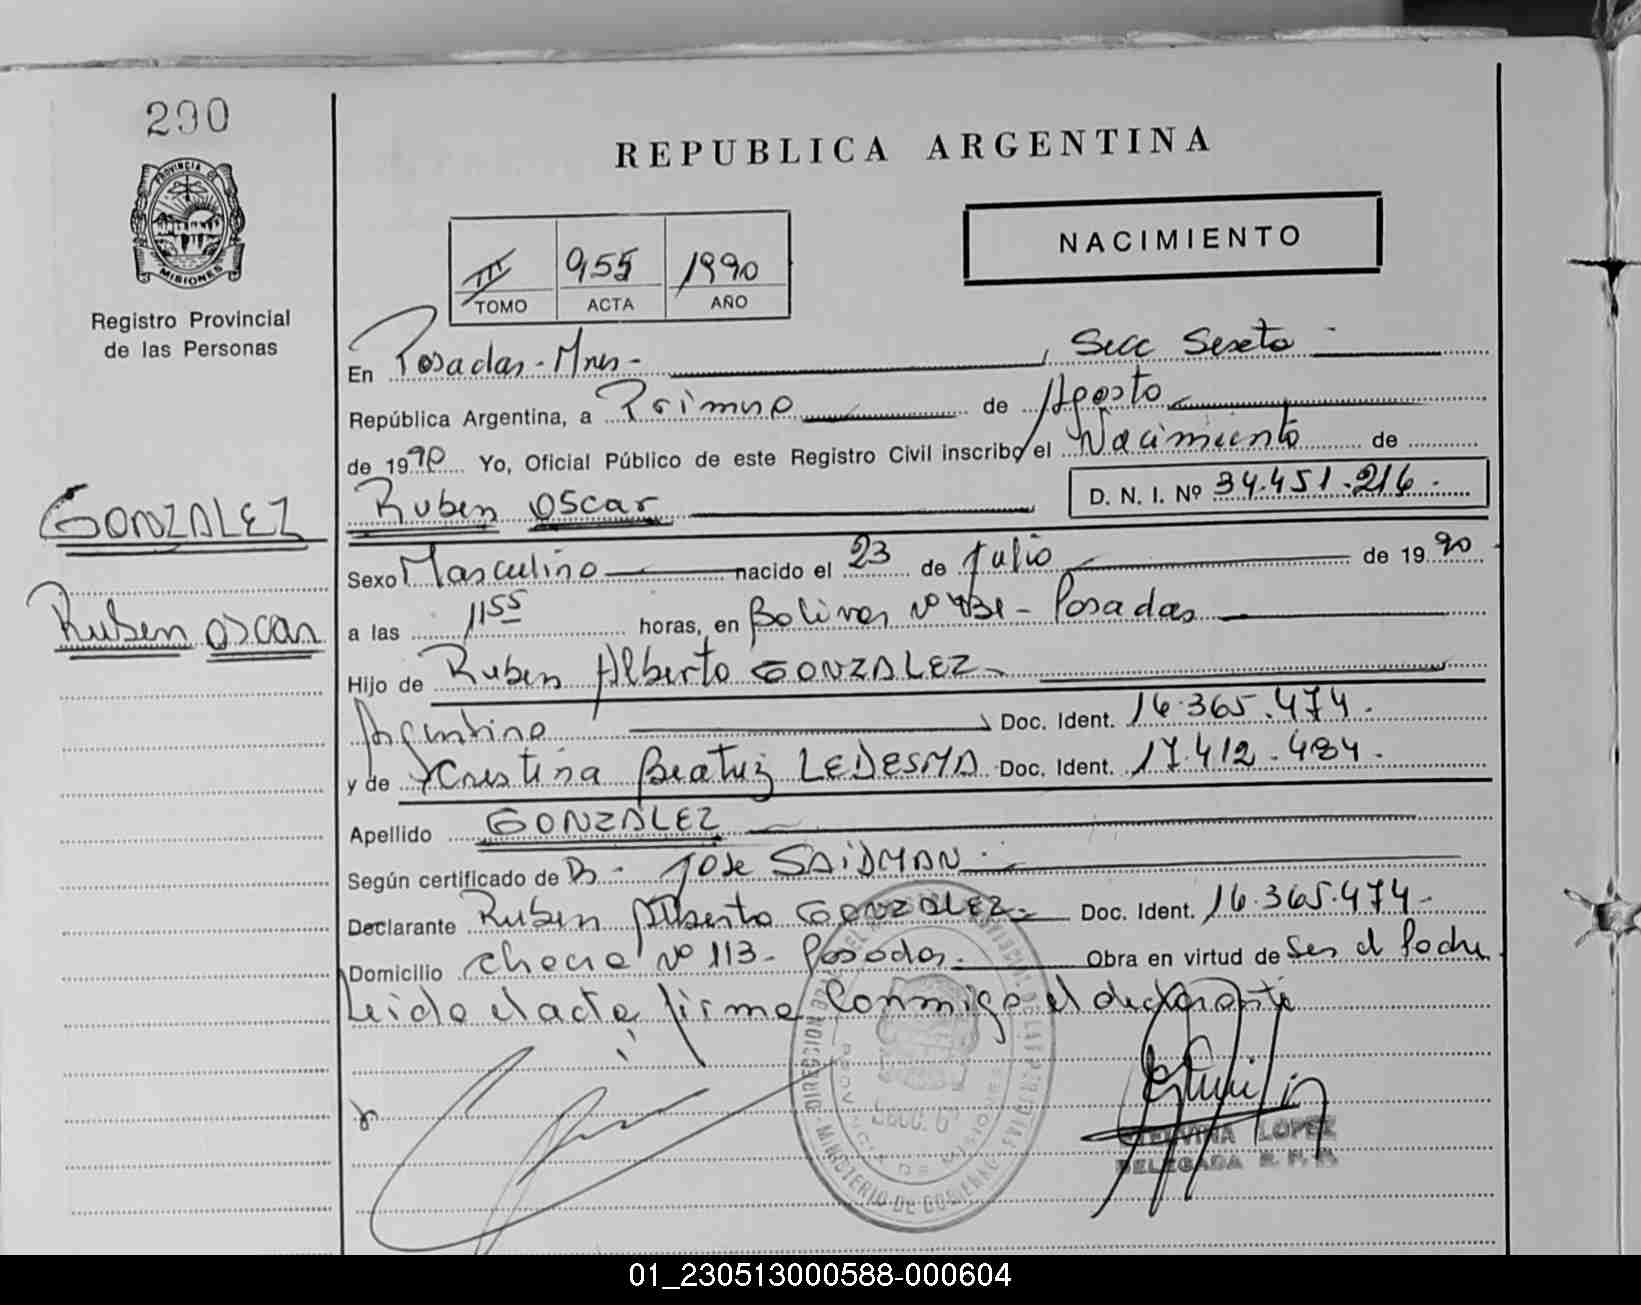 290
REPUBLICA ARGENTINA
PROVINCIA DE
MISIONES
Registro Provincial
de las Personas
III 955 1990
TOMO ACTA AÑO
NACIMIENTO
En Posadas - Mnes - , Secc Sexta -
República Argentina, a Primero de Agosto
de 1990 Yo, Oficial Público de este Registro Civil inscribo el Nacimiento de
GONZALEZ
Ruben Oscar D. N. I. Nº 34.451.216.
Sexo Masculino nacido el 23 de Julio de 1990
Ruben Oscar
a las 11 55 horas, en Bolivar Nº - Posadas
Hijo de Ruben Alberto GONZALEZ
Argentino Doc. Ident. 16.365.474.
y de Cristina Beatriz LEDESMA Doc. Ident. 17.412.484.
Apellido GONZALEZ
Según certificado de Dr. Jose SAIDMAN.
Declarante Ruben Alberto GONZALEZ Doc. Ident. 16.365.474-
Domicilio Chacra Nº 113 - Posadas. Obra en virtud de Ser el Padre
Leida el acta, firma conmigo el declarante
SECC. 6
PROVINCIA DE MISIONES
MINISTERIO DE GOBIERNO
LOPEZ
DELEGADA
01_230513000588-000604